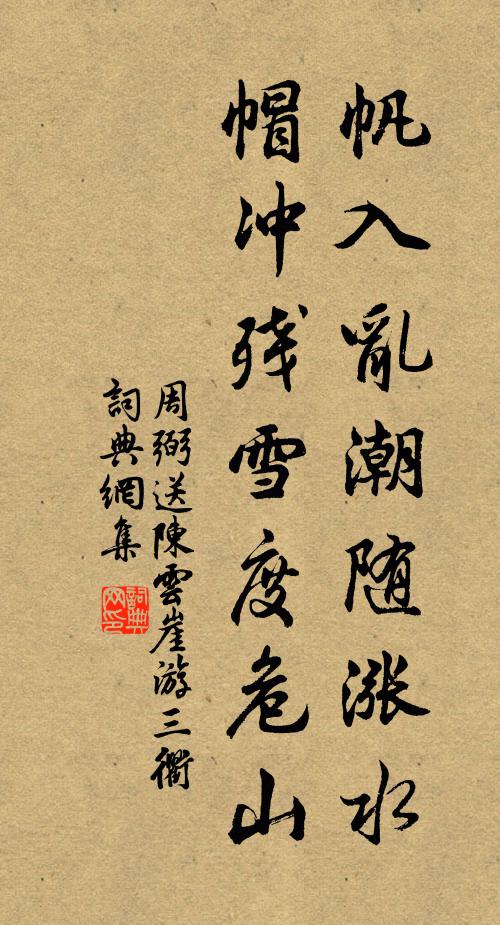 帆入亂潮随涨水
帽冲残雪度危山
周弼送陳雲崖游三衢
詞典網集
詞典网印